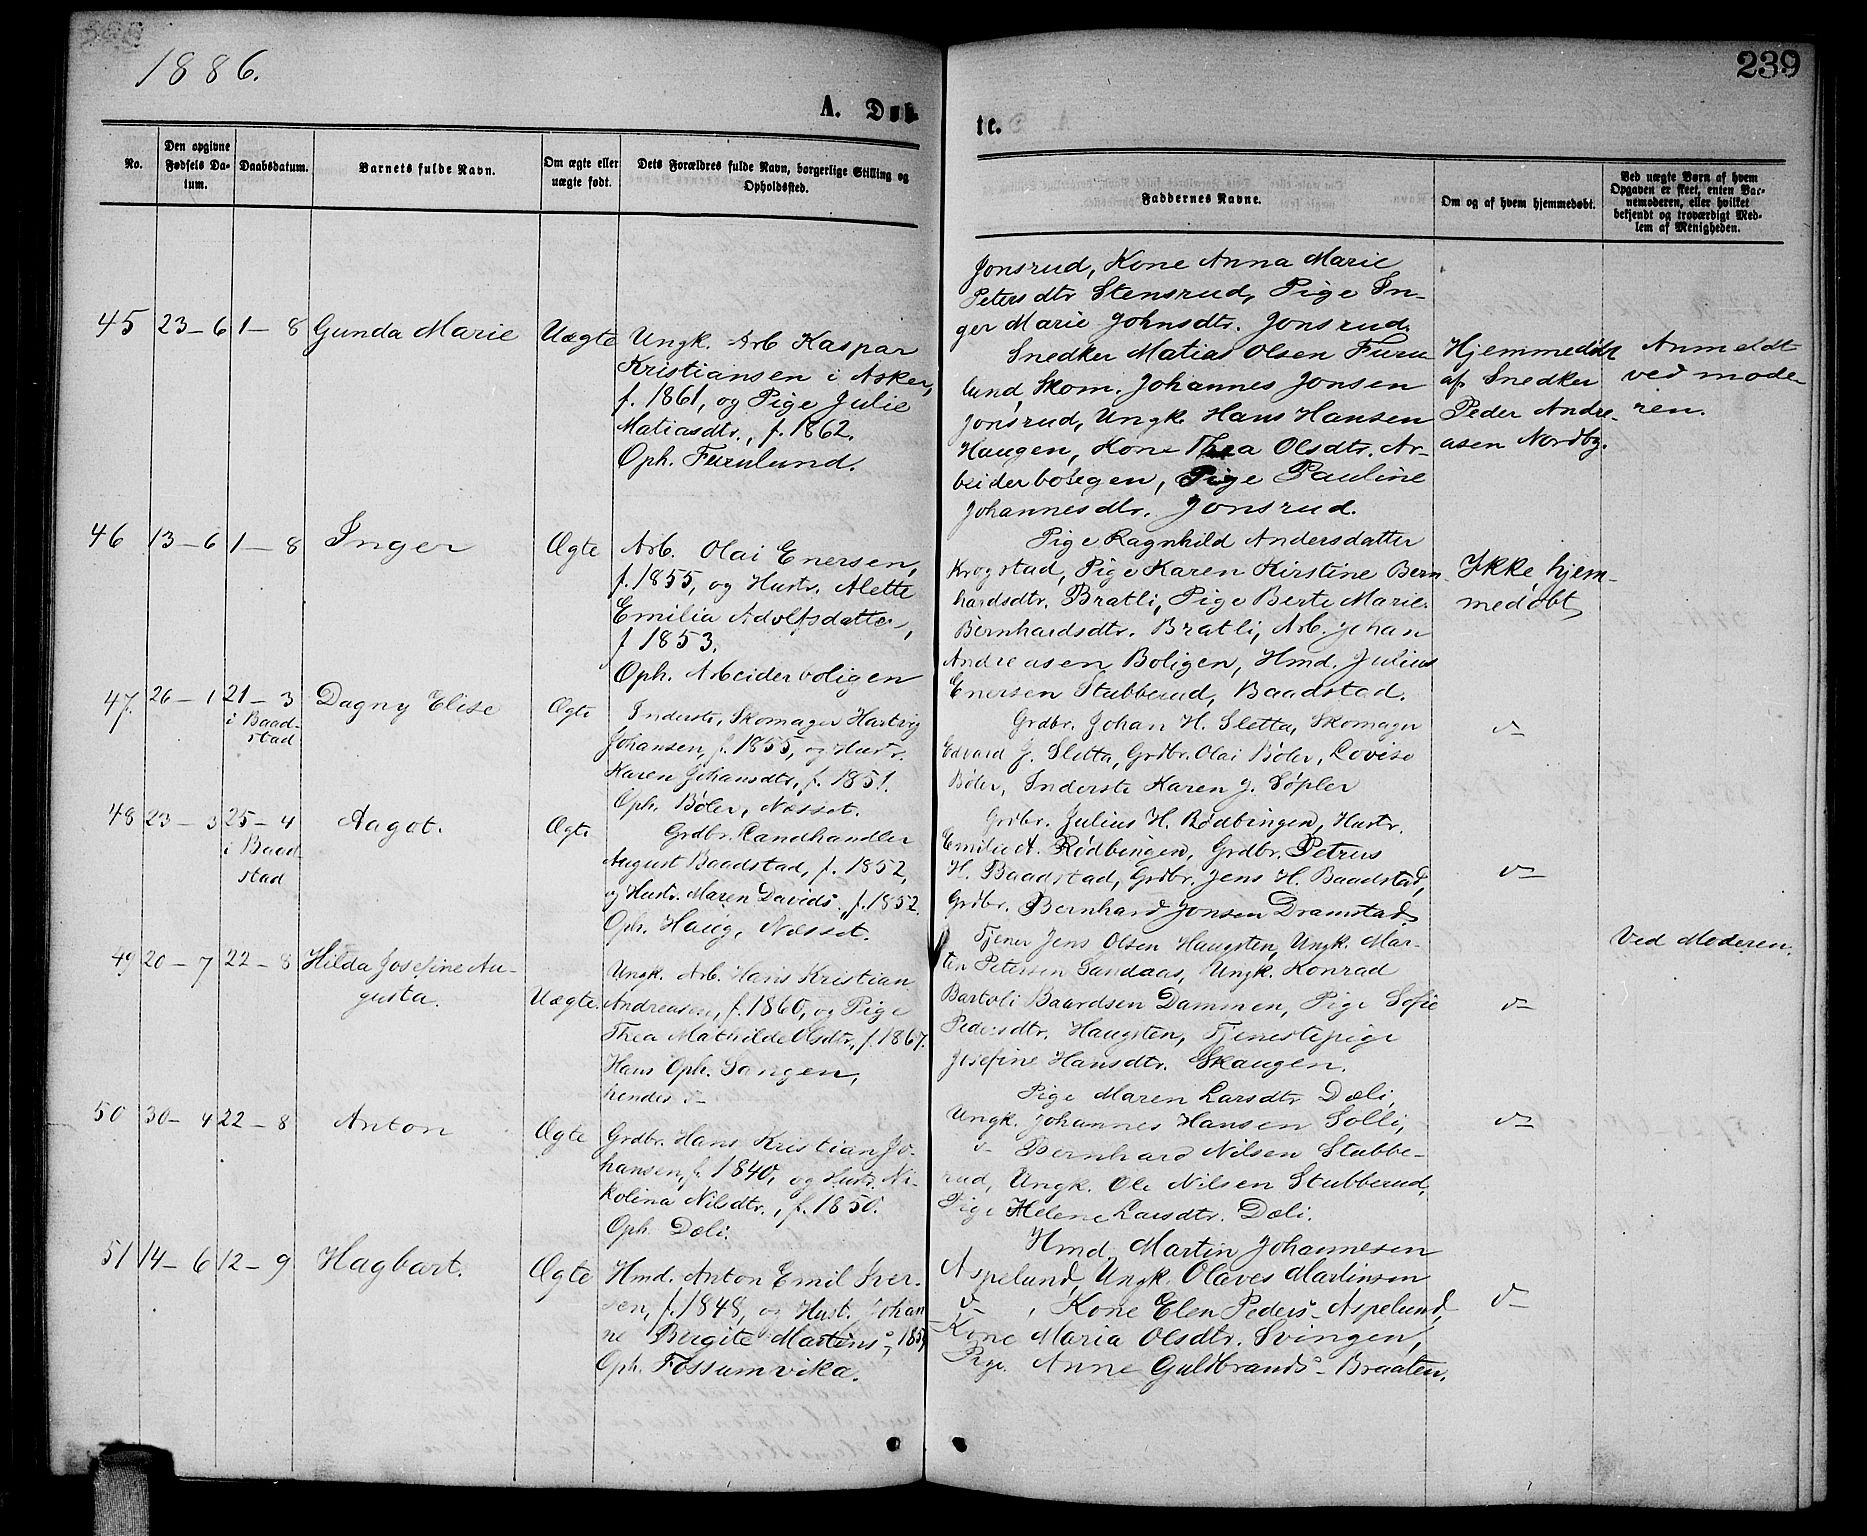 1886.
239
A. Døbte.
No.
Den opgivne Fødsels Datum.
Daabsdatum.
Barnets fulde Navn.
Om ægte eller uægte født.
Dets Forældres fulde Navn, borgerlige Stilling og Opholdssted.
Faddernes Navne.
Om og af hvem hjemmedøbt.
Ved uægte Børn af hvem Opgaven er skeet, enten Barnemoderen, eller hvilket bekjendt og troværdigt Medlem af Menigheden.
Jonsrud, Kone Anna Marie
Petersdtr Stensrud, Pige In-
ger Marie Johnsdtr. Jonsrud.
45 23-6 1-8 Gunda Marie Uægte
Ungk. Arb Kaspar
Kristiansen i Asker,
f. 1861, og Pige Julie
Matiasdtr., f. 1862.
Oph. Furulund.
Snedker Matias Olsen Furu
lund, Skom. Johannes Jonsen
Jonsrud, Ungk. Hans Hansen
Haugen, Kone Thea Olsdtr. Ar-
beiderboligen, Pige Pauline
Johannesdtr. Jonsrud.
Hjemmedøbt
af Snedker
Peder Andre-
asen Nordby.
Anmeldt
ved mode-
ren.
46 13-6 1-8 Inger Ægte
Arb. Olai Enersen,
f. 1855, og Hustr. Alette
Emilia Adolfsdatter,
f 1853.
Oph. Arbeiderboligen
Pige Ragnhild Andersdatter
Krogstad, Pige Karen Kirstine Bern
hardsdtr. Bratli, Pige Berte Marie
Bernhardsdtr. Bratli, Arb. Johan
Andreasen Boligen, Hmd. Julius
Enersen Stubberud, Baadstad.
Ikke hjem-
medøbt
47. 26-1 21-3
i Baad-
stad
Dagny Elise Ægte
Inderste, Skomager Hartvig
Johansen, f. 1855, og Hustr.
Karen Johansdtr., f. 1851.
Oph. Bøler, Næsset.
Grdbr. Johan H. Sletta, Skomager
Edvard J. Sletta, Grdbr. Olai Bøler, Lovise
Bøler, Inderste Karen J. Søpler
v-
48 23-3 25-4
i Baad
stad
Aagot. Ægte
Grdbr. Landhandler
August Baadstad, f. 1852,
og Hustr. Maren Davids-, f. 1852.
Oph. Haug, Næsset.
Grdbr. Julius H. Rødbingen, Hustr.
Emilie A. Rødbingen, Grdbr. Petrus
H. Baadstad, Grdbr. Jens H. Baadstad,
Grdbr. Bernhard Jonsen Dramstad
v-
49 20-7 22-8 Hilda Josefine Au-
gusta. Uægte.
Ungk. Arb. Hans Kristian
Andreasen, f. 1860, og Pige
Thea Mathilde Olsdtr., f. 1867.
Hans Oph. Tangen,
hendes v-
Tjener Jens Olsen Haugsten, Ungk. Mar-
ten Petersen Sandaas, Ungk. Konrad
Bartoli Baardsen Dammen, Pige Sofie
Pedersdtr. Haugsten, Tjenestepige
Josefine Hansdtr. Skaugen.
v-
Ved Moderen.
50 30-4 22-8 Anton Ægte
Grdbr. Hans Kristian Jo-
hansen, f. 1840, og Hustr. Ni-
kolina Nilsdtr., f. 1850.
Oph. Dæli.
Pige Maren Larsdtr Dæli,
Ungk. Johannes Hansen Solli,
v- Bernhard Nilsen Stubbe-
rud, Ungk. Ole Nilsen Stubberud,
Pige Helene Larsdtr. Dæli.
v-
51 14-6 12-9 Hagbart. Ægte
Hmd. Anton Emil Iver-
sen, f. 1848, og Hust. Johan
ne Birgite Martins-,
Oph. Fossumvika.
Hmd. Martin Johannesen
Aspelund, Ungk. Olaves Martinsen
v-, Kone Elen Peders- Aspelund,
Kone Maria Olsdtr. Svingen,
Pige. Anne Guldbrands- Braaten.
v-